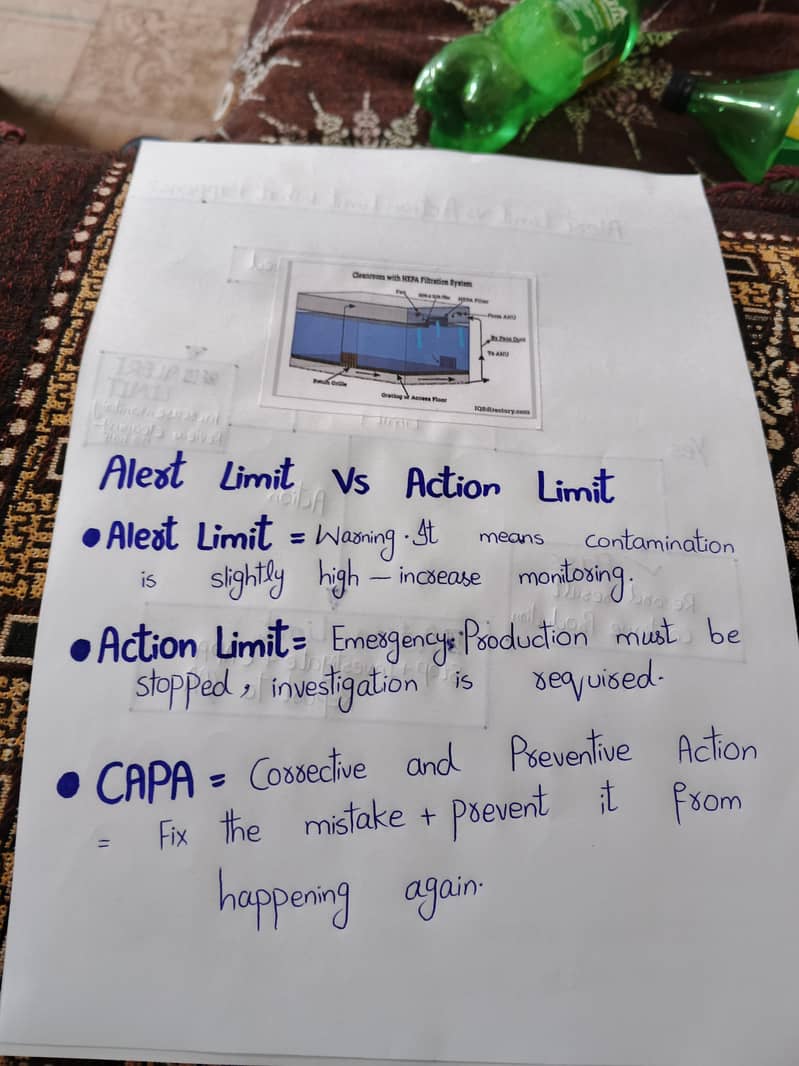 Cleanroom with HEPA Filtration System
Fan
HEPA Filter
From AHU
By Pass Duct
To AHU
Return Grille
Grating or Access Floor
IQSdirectory.com
Alert Limit Vs Action Limit
• Alert Limit = Warning. It means contamination
is slightly high – increase monitoring.
• Action Limit = Emergency. Production must be
stopped, investigation is required.
• CAPA = Corrective and Preventive Action
= Fix the mistake + prevent it from
happening again.